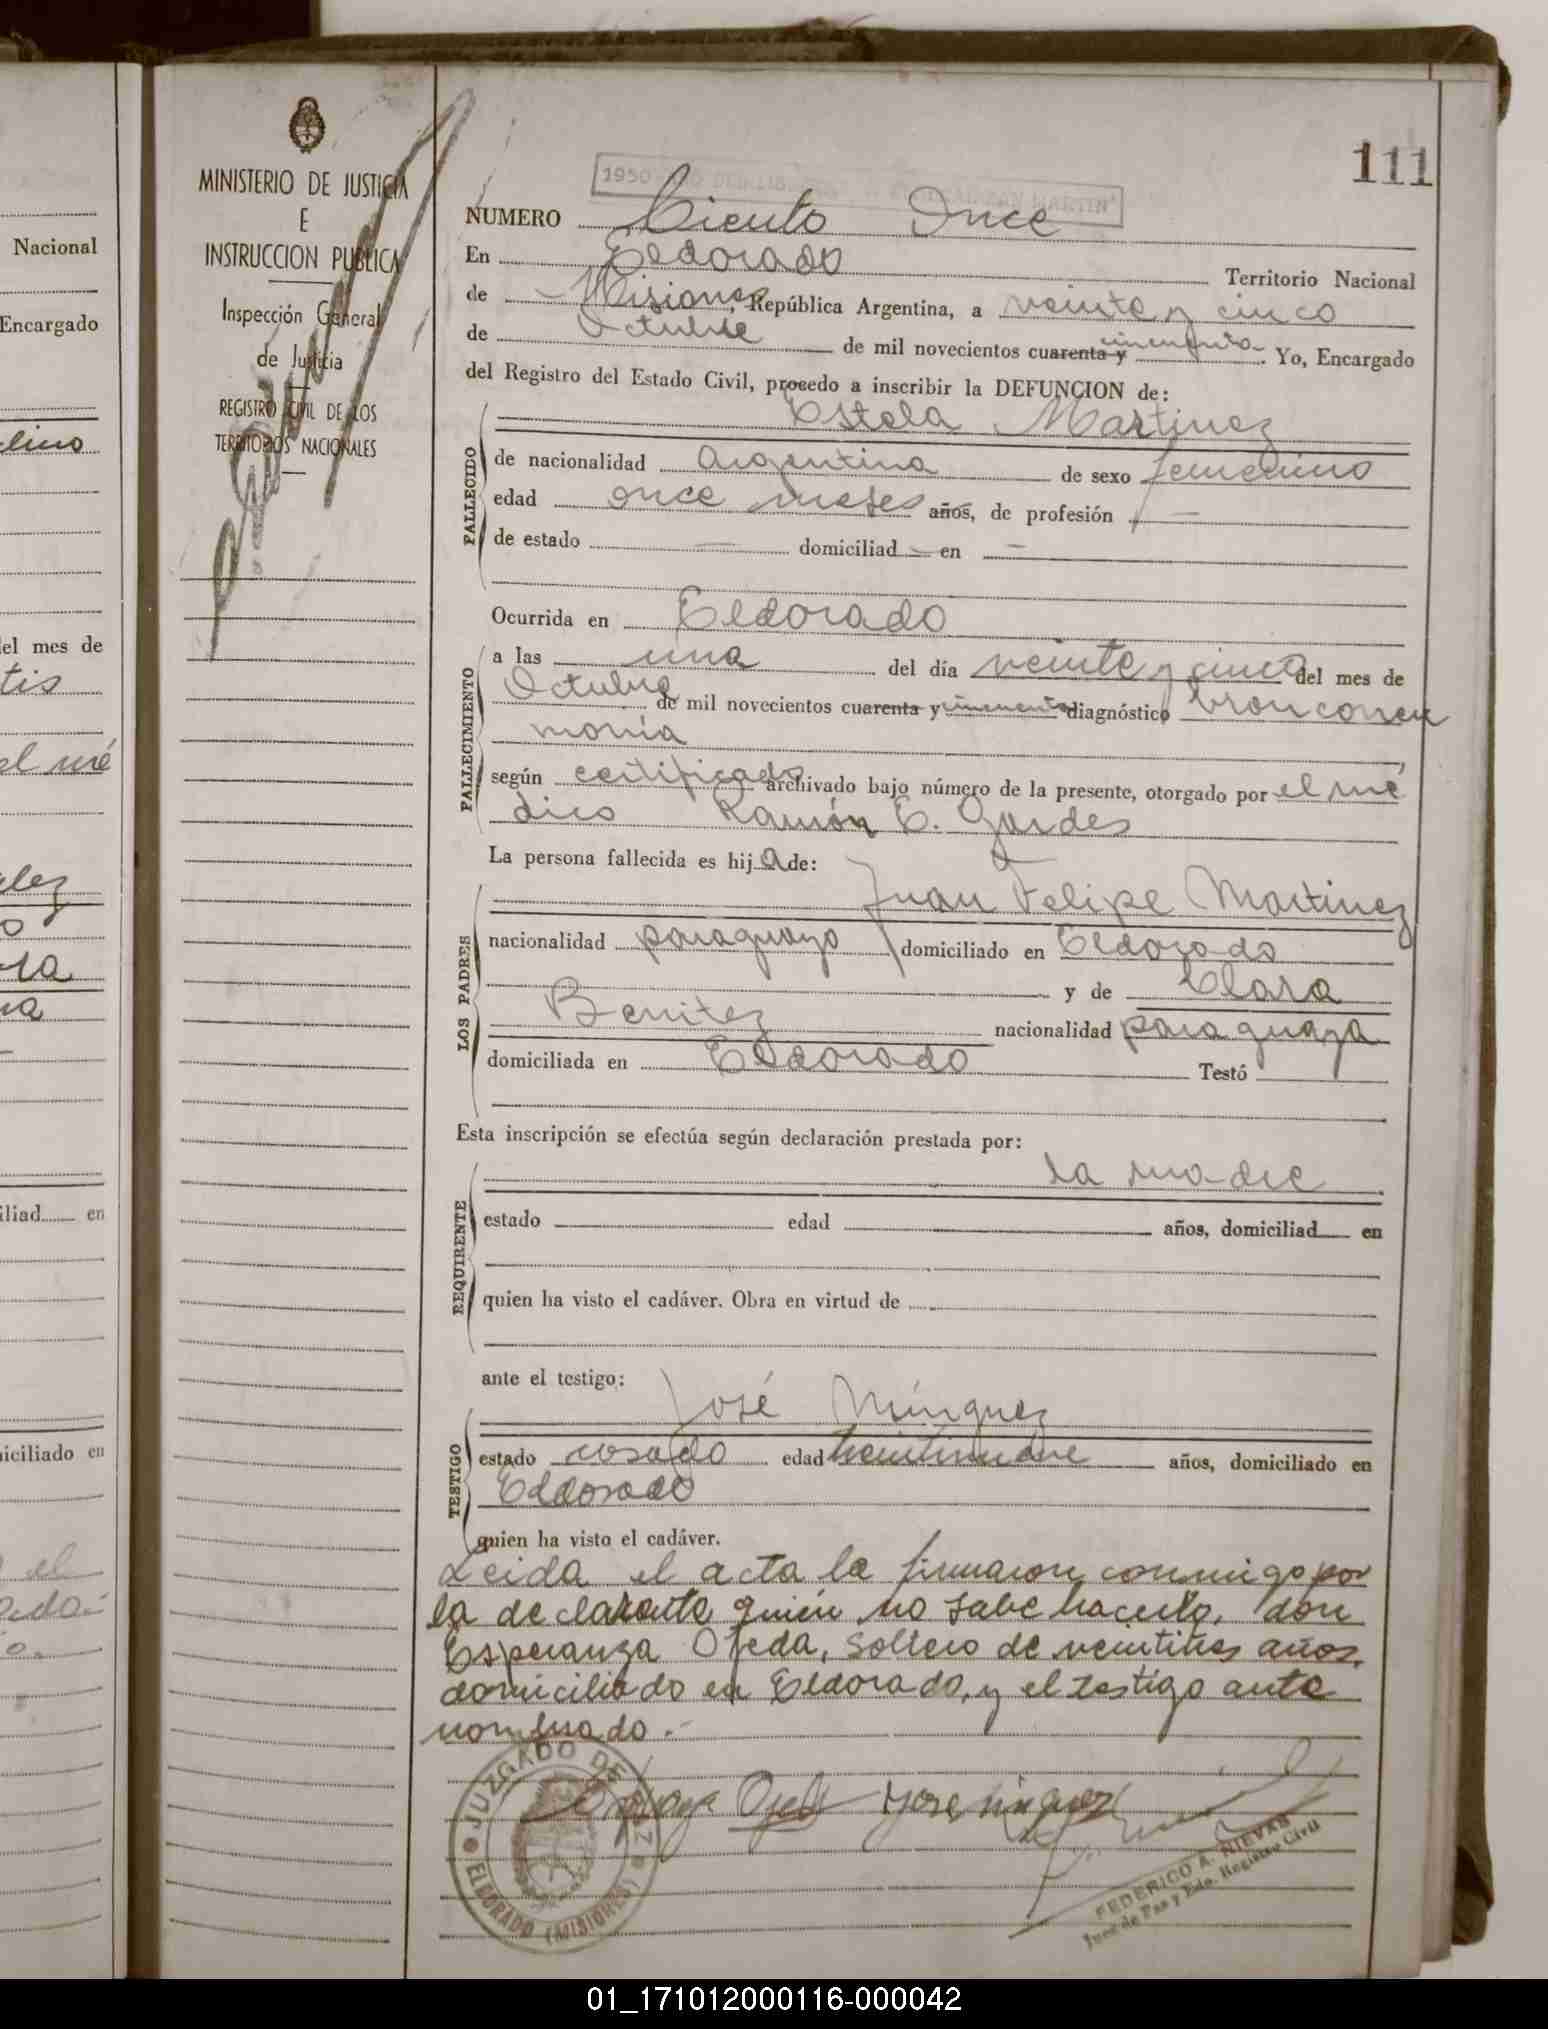 Nacional
Encargado
lino
del mes de
tis
el mé
lez
o
ra
na
iliad... en
iciliado en
el
MINISTERIO DE JUSTICIA
E
INSTRUCCION PUBLICA
Inspección General
de Justicia
REGISTRO CIVIL DE LOS
TERRITORIOS NACIONALES
111
1950 SAN MARTIN
NUMERO Ciento Once
En Eldorado Territorio Nacional
de Misiones, República Argentina, a veinte y cinco
de Octubre de mil novecientos cuarenta y cincuenta. Yo, Encargado
del Registro del Estado Civil, procedo a inscribir la DEFUNCION de:
Estela Martinez
FALLECIDO
de nacionalidad Argentina de sexo femenino
edad once meses años, de profesión —
de estado — domiciliad — en —
Ocurrida en Eldorado
FALLECIMIENTO
a las una del día veinte y cinco del mes de
Octubre de mil novecientos cuarenta y cincuenta diagnóstico bronconeu
monía
según certificado archivado bajo número de la presente, otorgado por el mé
dico Ramón E. Gardes
La persona fallecida es hija de:
LOS PADRES
Juan Felipe Martinez
nacionalidad paraguayo domiciliado en Eldorado
y de Clara
Benitez nacionalidad paraguaya
domiciliada en Eldorado Testó
Esta inscripción se efectúa según declaración prestada por:
la madre
REQUIRENTE
estado edad años, domiciliad en
quien ha visto el cadáver. Obra en virtud de
ante el testigo:
José Mínguez
TESTIGO
estado casado edad treintinueve años, domiciliado en
Eldorado
quien ha visto el cadáver.
Leida el acta la firmaron conmigo por
la declarante quien no sabe hacerlo, don
Esperanza Ojeda, soltero de veintitres años,
domiciliado en Eldorado, y el testigo ante
nombrado.-
JUZGADO DE PAZ
ELDORADO (MISIONES)
Esperanza Ojeda Jose Minguez
FEDERICO A. NIEVAS
Juez de Paz y Edo. Registro Civil
01_171012000116-000042